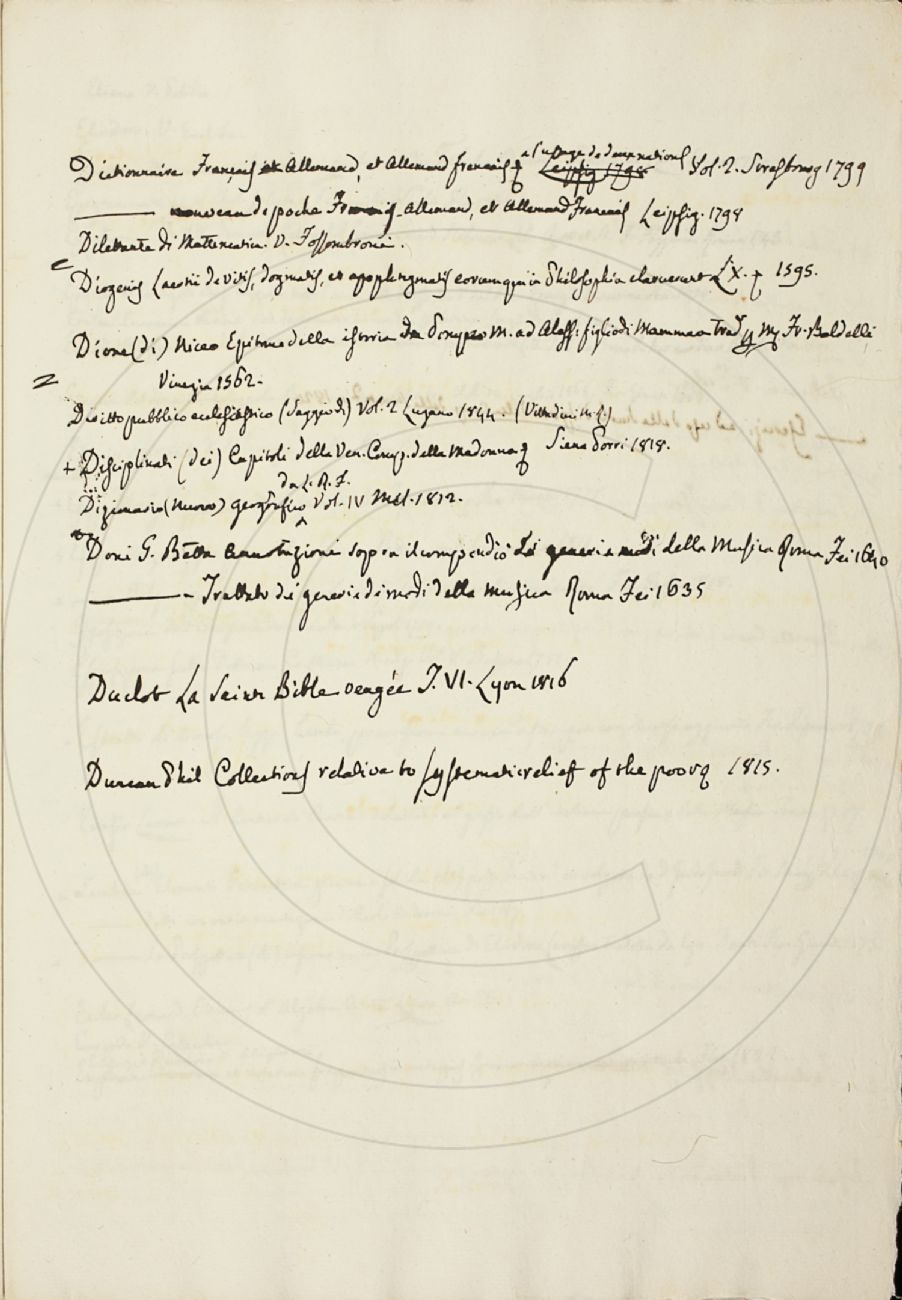 Dictionnaire Français Allemand, et Allemand français a l'usage de deux nations Leipzig 1798 Vol. 2. Strasbourg 1799
——— nouveau de poche Français-Allemand, et Allemand Français Leipsig. 1798
Dilettante di Mattematica. V. Fossombroni.
Diogenis Laertii de vitis, dogmatis, et apophtegmatis eorum qui in Philosophia claruerunt L. X. 1595.
Dione (di) Niceo Epitome della istoria da Pompeo M. ad Aless: figlio di Mammea Trad. Fr. Baldelli
Vinegia 1562.
Diritto pubblico ecclesiastico (Saggio di) Vol. 2 Lugano 1844. (Vittadini)
+ Disciplinati (dei) Capitoli della Ven. Comp. della Madonna Siena Porri 1818.
Dizionario (Nuovo) geografico da L. R. F. Vol. IV Mil. 1812.
Doni G. Batta annotazioni sopra il compendio de' generi e modi della Musica Roma Fei 1640
——— Trattato de' generi e di modi della musica Roma Fei 1635
Duclot La Sainte Bible vengée T. VI. Lyon 1816
Duncan Phil Collections relative to systematic relief of the poor 1815.